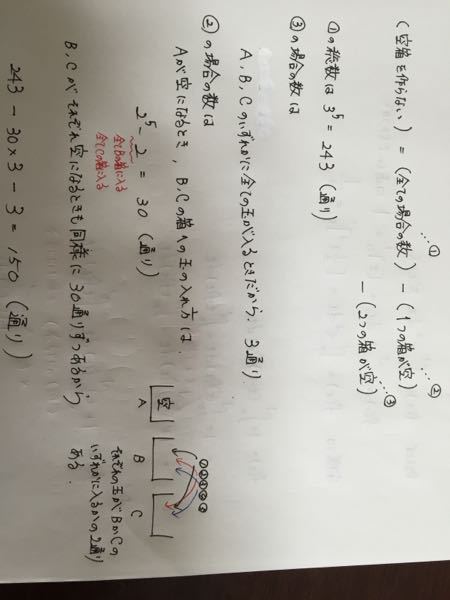 (空箱を作らない) = (全ての場合の数) - (1つの箱が空)
- (2つの箱が空)
…①
…②
…③
①の総数は 3⁵ = 243 (通り)
③の場合の数は
A, B, Cのいずれかに全ての玉が入るときだから、3通り
②の場合の数は
Aが空になるとき, B, Cの箱への玉の入れ方は、
2⁵ - 2 = 30 (通り)
全てBの箱に入る
全てCの箱に入る
B, Cがそれぞれ空になるときも同様に30通りずつあるから
243 - 30×3 - 3 = 150 (通り)
空
A
B
C
①②③④⑤
それぞれの玉がBかCの
いずれかに入るかの2通り
ある.